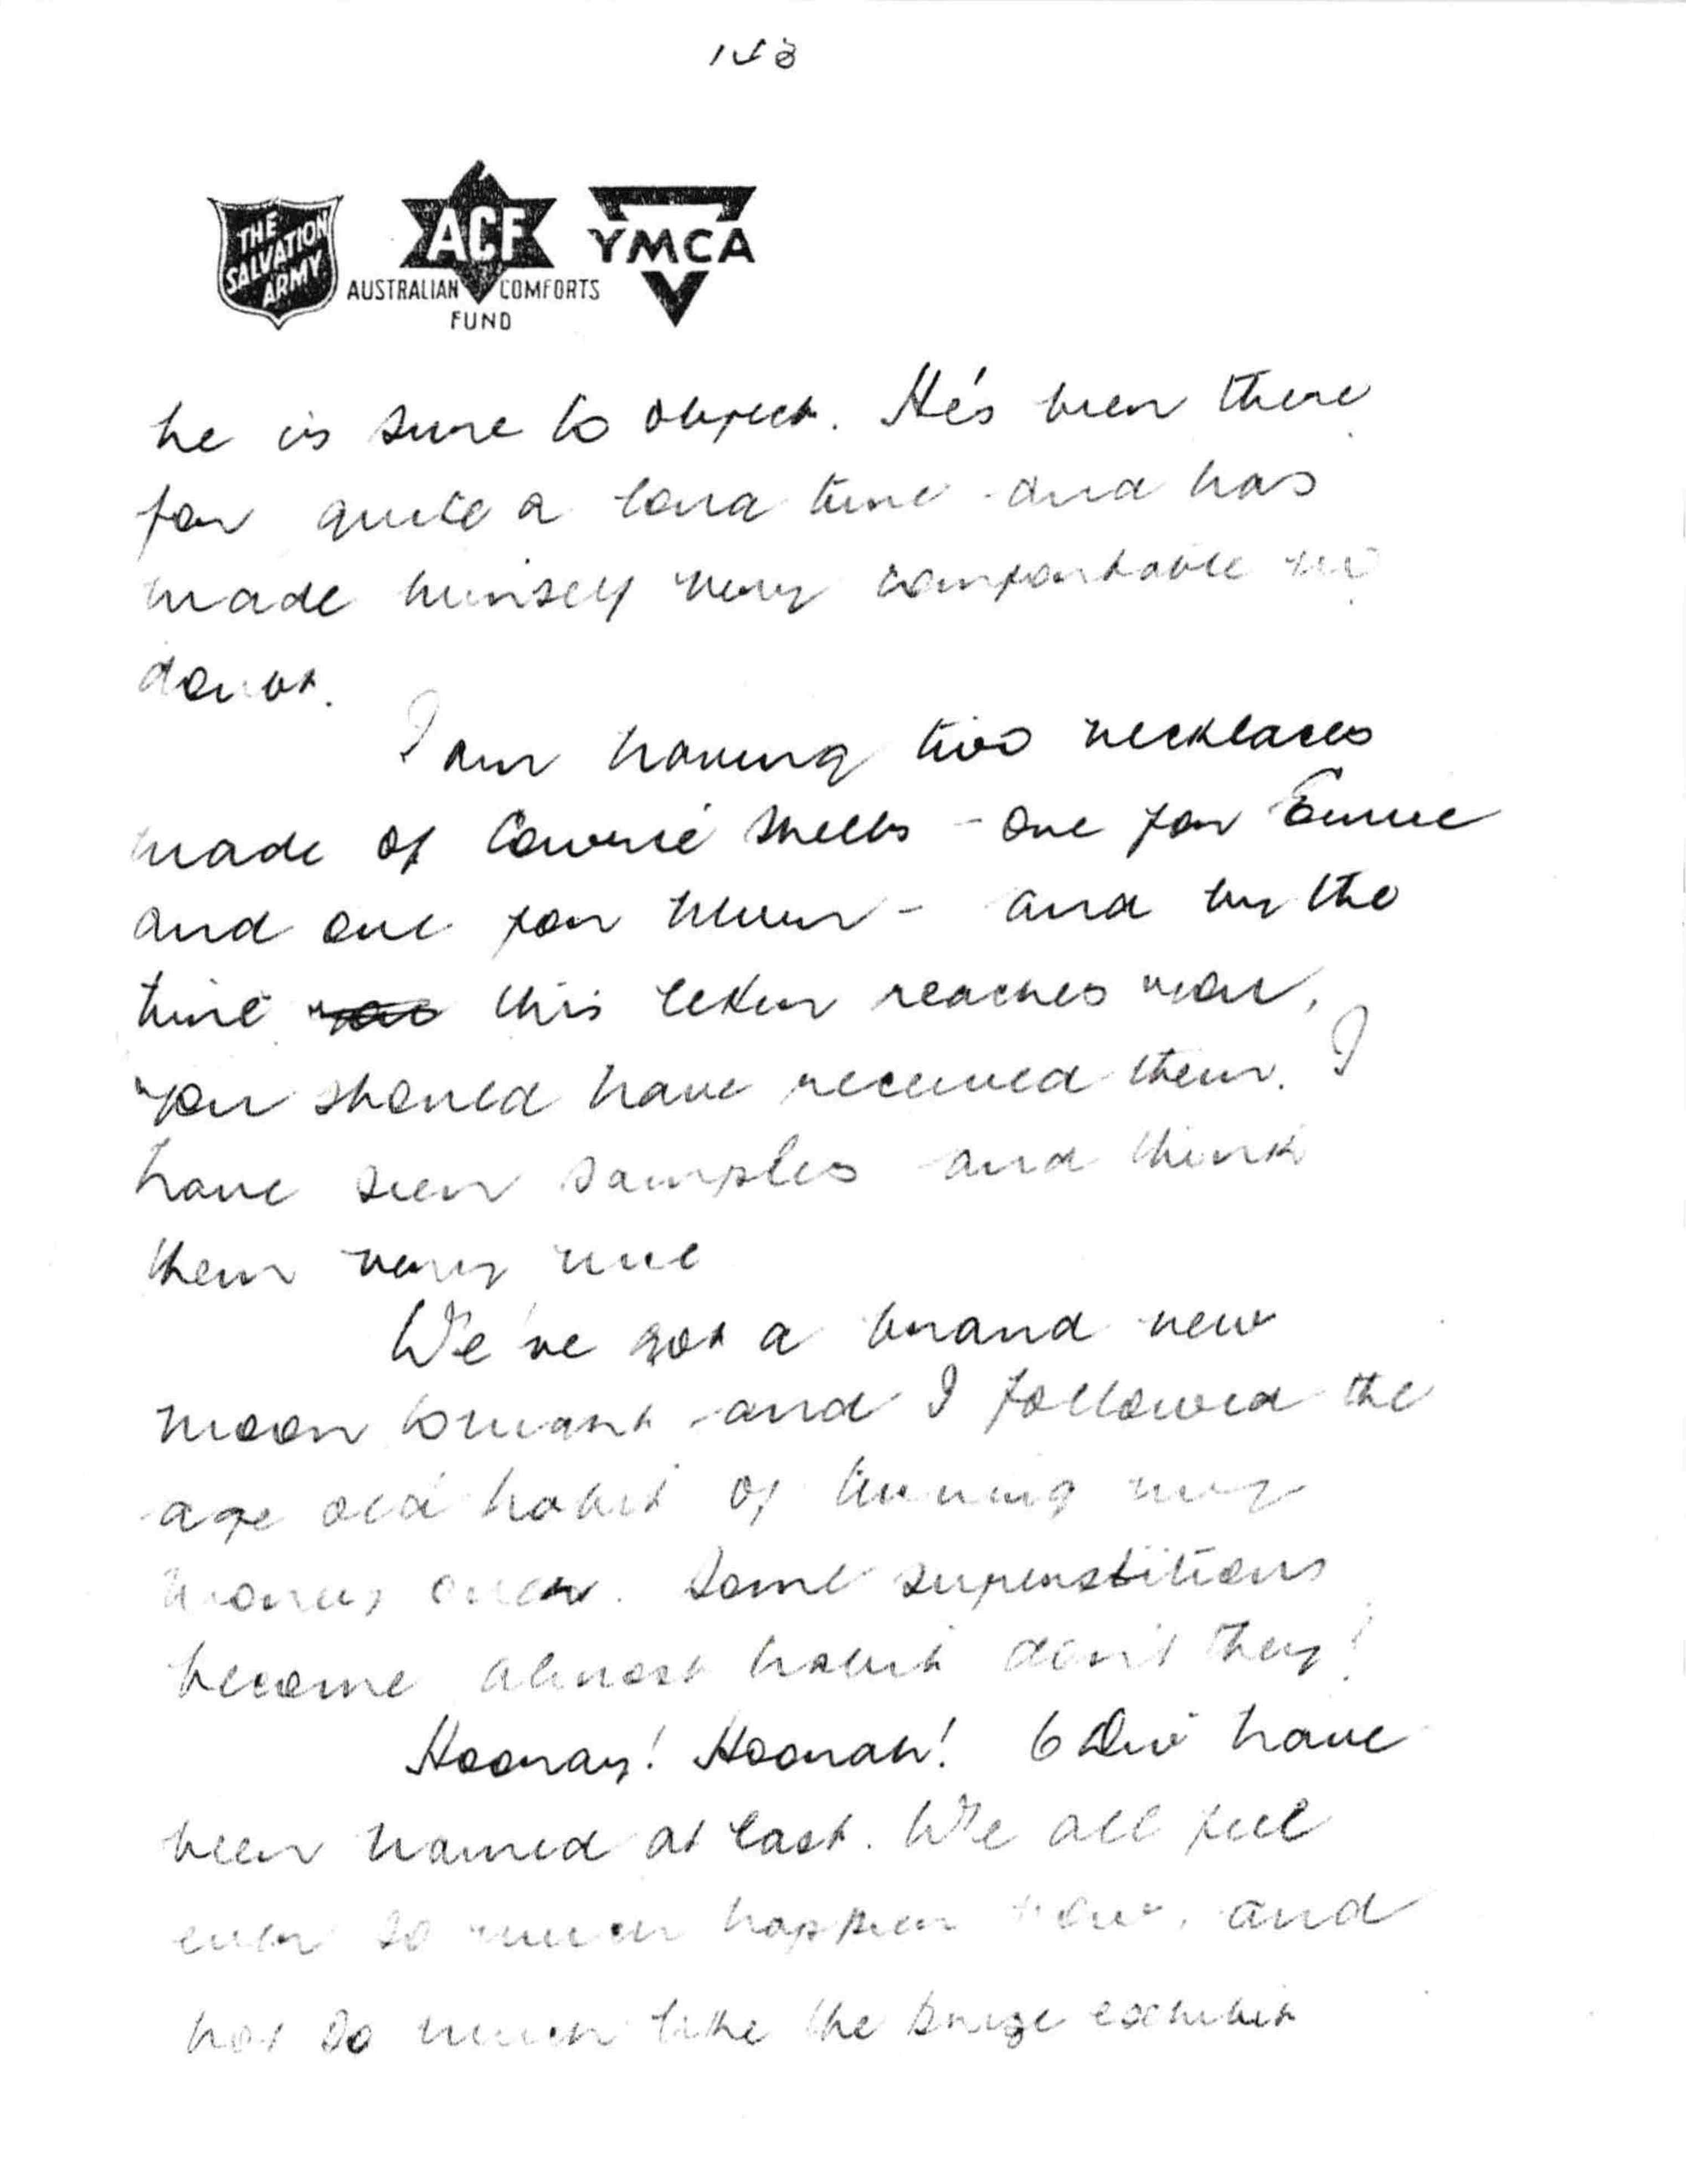 148
THE SALVATION ARMY
ACF
AUSTRALIAN COMFORTS FUND
YMCA
he is sure to object. He's been there
for quite a long time and has
made himself very comfortable no
doubt.
I am having two necklaces
made of Cowrie shells - one for
and one for Mum - and by the
time this letter reaches you,
you should have received them. I
have seen samples and think
them very nice
We've got a brand new
moon tonight and I followed the
age old habit of turning my
money over. Some superstitions
become almost habit don't they!
Hooray! Hoorah! 6 Div have
been named at last. We all feel
ever so much happier now, and
not so much like the prize exhibit